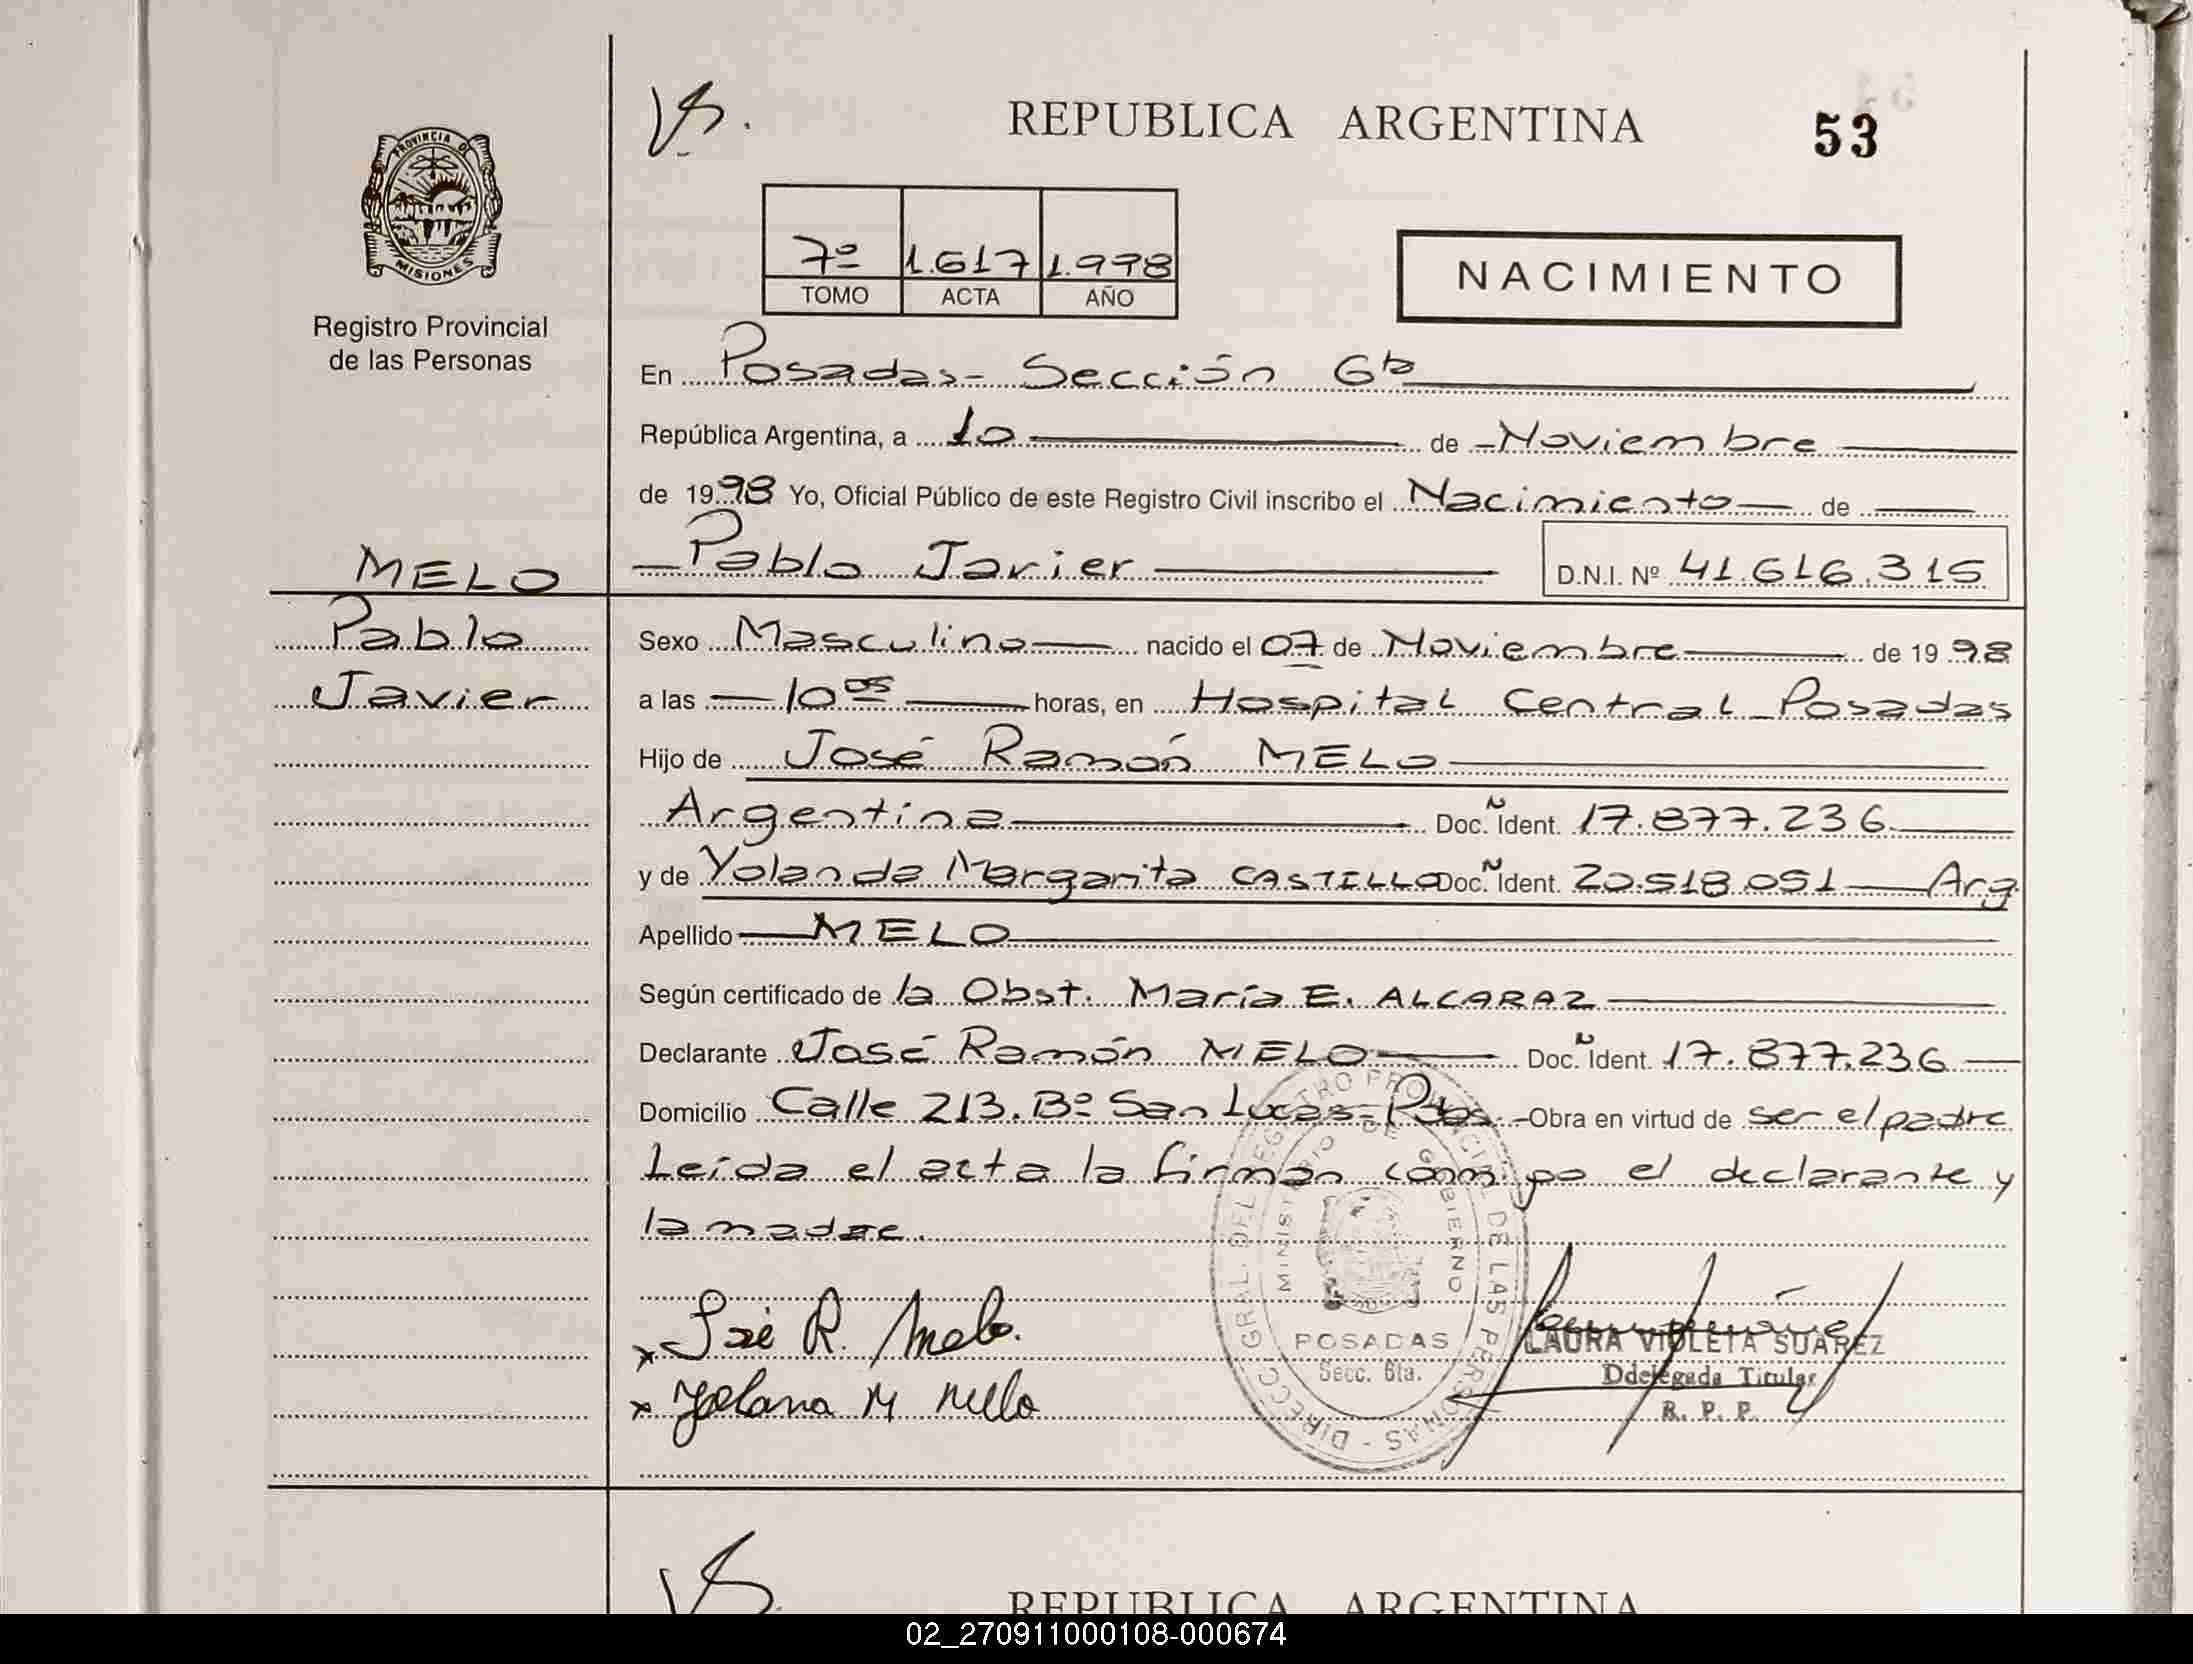 REPUBLICA ARGENTINA
53
PROVINCIA DE
MISIONES
Registro Provincial
de las Personas
7º 1.617 1.998
TOMO ACTA AÑO
NACIMIENTO
En Posadas - Sección 6ta
República Argentina, a 10 de Noviembre
de 1998 Yo, Oficial Público de este Registro Civil inscribo el Nacimiento de
MELO
Pablo
Javier
Pablo Javier D.N.I. Nº 41.616.315
Sexo Masculino nacido el 07 de Noviembre de 1998
a las 10 05 horas, en Hospital Central - Posadas
Hijo de José Ramón MELO
Argentina Doc. Ñ Ident. 17.877.236
y de Yolanda Margarita CASTILLO Doc. Ñ Ident. 20.518.051 Arg
Apellido MELO
Según certificado de la Obst. María E. ALCARAZ
Declarante José Ramón MELO Doc. Ñ Ident. 17.877.236
Domicilio Calle 213. Bº San Lucas - Pdas. - Obra en virtud de ser el padre
Leída el acta la firman conmigo el declarante y
la madre.
x José R. Melo.
x Yolana M Mello
DIRECC. GRAL. DEL REGISTRO PROVINCIAL DE LAS PERSONAS
MINISTERIO DE GOBIERNO
POSADAS
Secc. 6ta.
LAURA VIOLETA SUAREZ
Ddelegada Titular
R. P. P.
REPUBLICA ARGENTINA
02_270911000108-000674